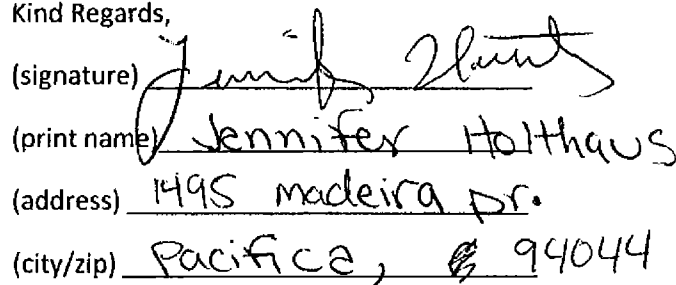 Kind Regards,
(signature)
(print name) Jennifer Holthaus
(address) 1495 madeira Dr.
(city/zip) Pacifica, 94044